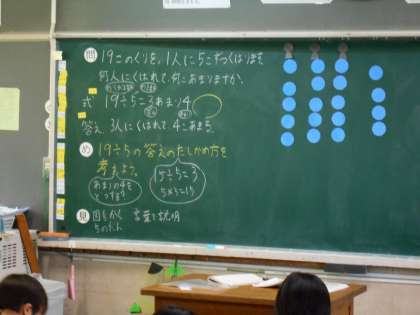 問 19このくりを、1人に5こずつくばります
何人にくばれて、何こあまりますか。
式 19÷5=3あまり4
答え 3人にくばれて 4こあまる
め 19÷5の答えのたしかめ方を
考えよう。
あまりの4を
どうする?
15÷5=3
5×3=15
見 図をかく 言葉で説明